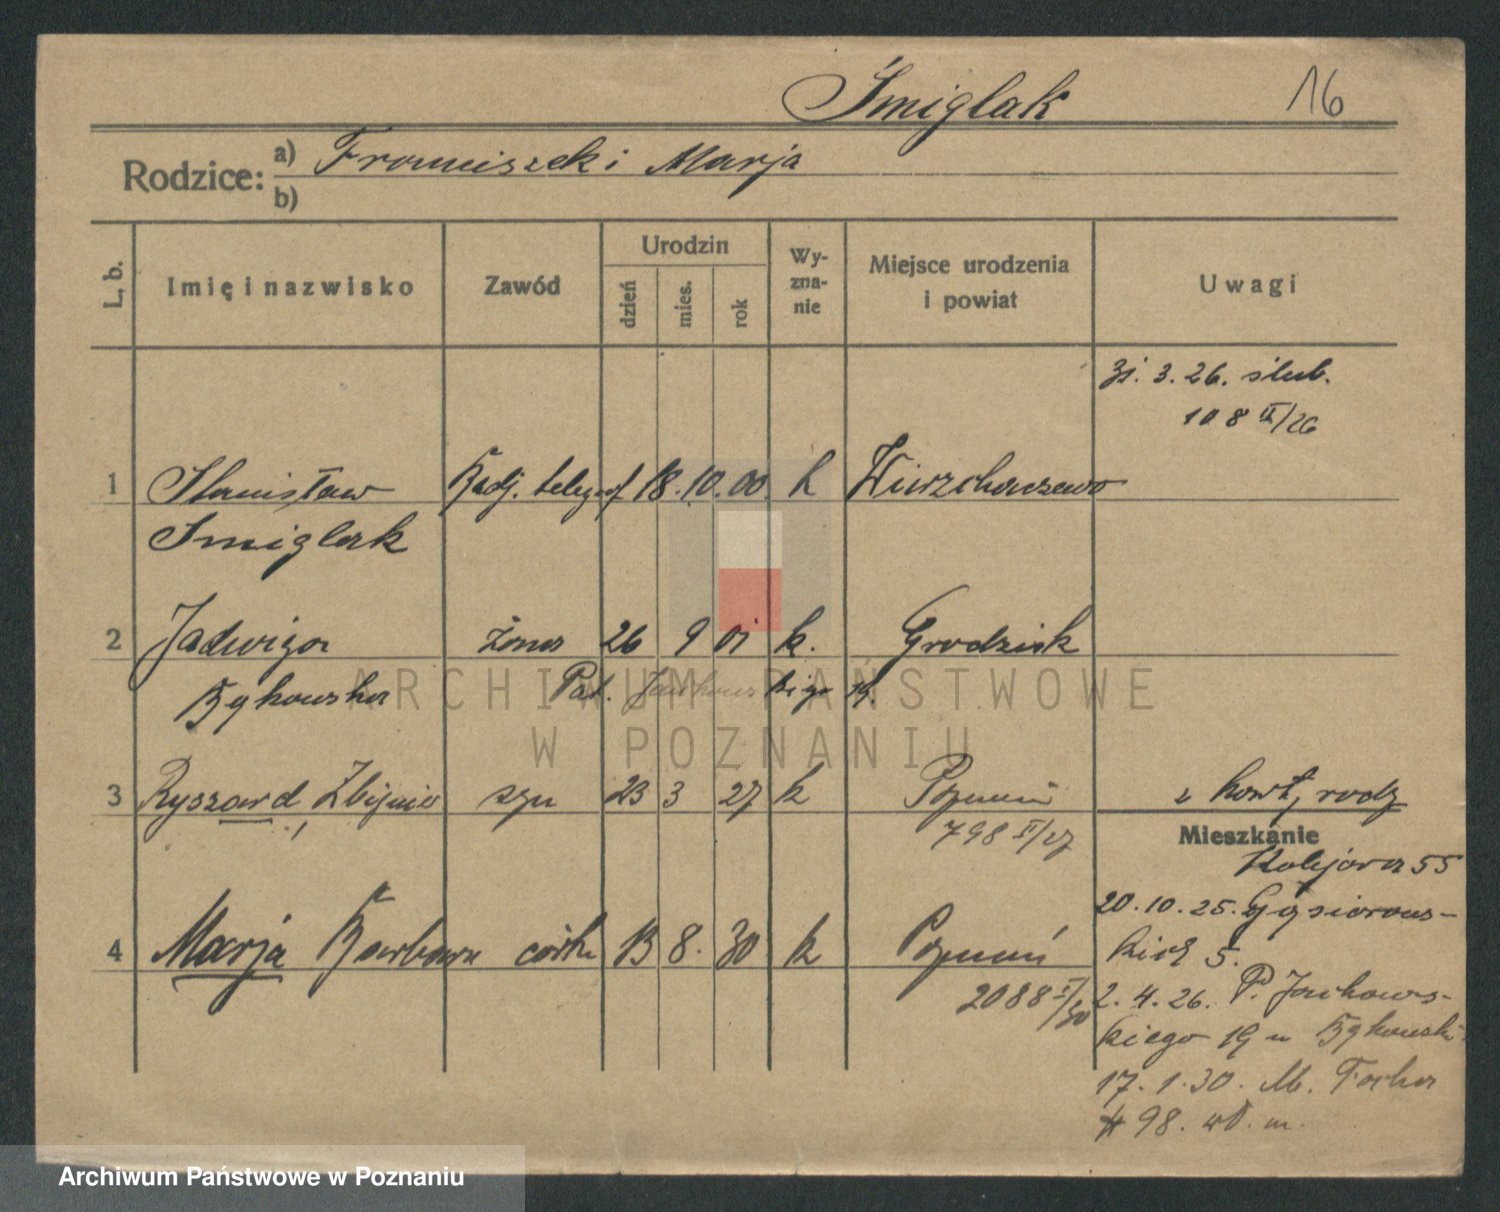 Śmiglak 16
Rodzice: a) Franciszek i Marja
b)
L. b. Imię i nazwisko Zawód Urodzin dzień mies. rok Wy-zna-nie Miejsce urodzenia i powiat Uwagi
31. 3. 26. ślub.
108 II/26
1 Stanisław telegraf 18. 10. 00 k
Smiglak
2 Jadwiga żona 26 9 01 k. Grodzisk
Bykowska Pat. Jackowskiego 19.
3 Ryszard, Zbigniew syn 23 3 27 k Poznań rodz
798 II/27
Mieszkanie
Kolejowa 55
20. 10. 25. Gąsiorows-
kich 5.
4 Marja Barbara córka 13 8. 30 k Poznań
2088 I/30
2. 4. 26. P. Jackows-
kiego 19 u Bykowski
17. 1. 30. M. Focha
98. wł. m.
ARCHIWUM PAŃSTWOWE
W POZNANIU
Archiwum Państwowe w Poznaniu